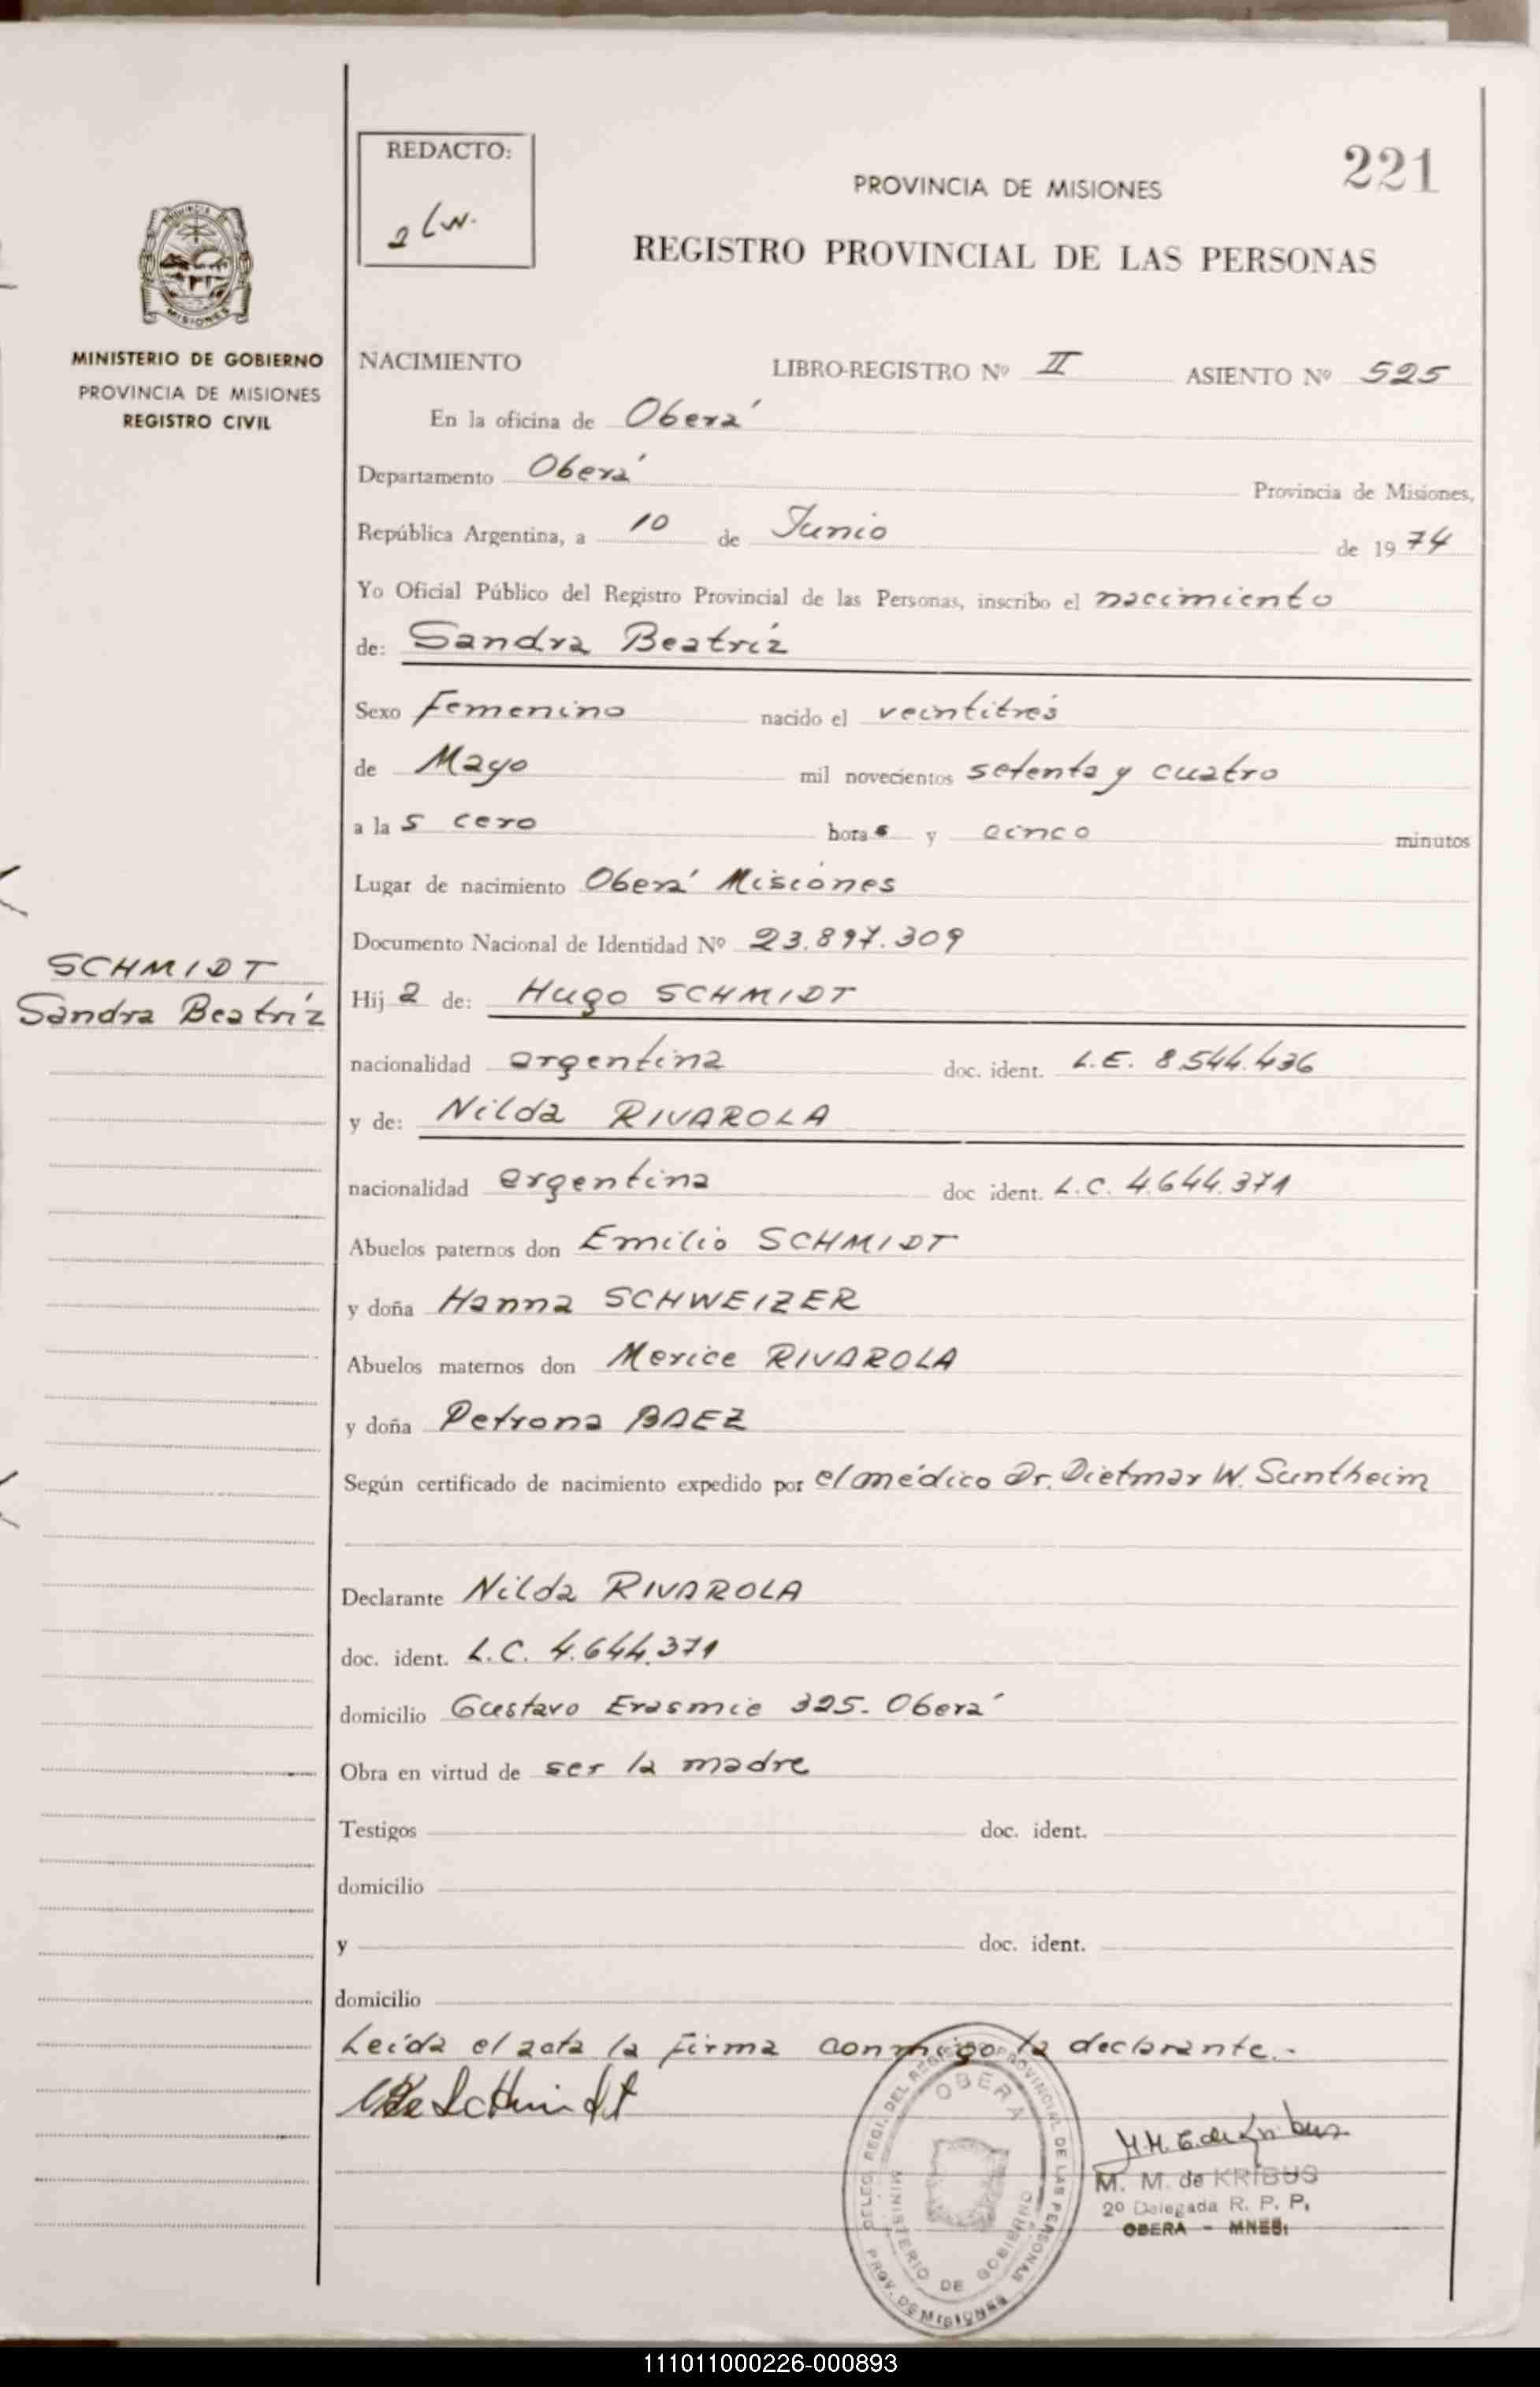 REDACTO:
221
PROVINCIA DE MISIONES
REGISTRO PROVINCIAL DE LAS PERSONAS
PROVINCIA DE
MISIONES
MINISTERIO DE GOBIERNO
PROVINCIA DE MISIONES
REGISTRO CIVIL
NACIMIENTO LIBRO-REGISTRO Nº II ASIENTO Nº 525
En la oficina de Oberá
Departamento Oberá Provincia de Misiones,
República Argentina, a 10 de Junio de 1974
Yo Oficial Público del Registro Provincial de las Personas, inscribo el nacimiento
de: Sandra Beatriz
Sexo Femenino nacido el veintitrés
de Mayo mil novecientos setenta y cuatro
a las cero horas y cinco minutos
Lugar de nacimiento Oberá Misiones
Documento Nacional de Identidad Nº 23.897.309
SCHMIDT
Sandra Beatriz
Hija de: Hugo SCHMIDT
nacionalidad argentina doc. ident. L.E. 8.544.436
y de: Nilda RIVAROLA
nacionalidad argentina doc ident. L.C. 4.644.371
Abuelos paternos don Emilio SCHMIDT
y doña Hanna SCHWEIZER
Abuelos maternos don RIVAROLA
y doña Petrona BAEZ
Según certificado de nacimiento expedido por el médico Dr. Dietmar W. Suntheim
Declarante Nilda RIVAROLA
doc. ident. L.C. 4.644.371
domicilio Gustavo Erasmie 325. Oberá
Obra en virtud de ser la madre
Testigos doc. ident.
domicilio
y doc. ident.
domicilio
Leída el acta la firma conmigo la declarante.-
DELEG. REGI. DEL REGISTRO PROVINCIAL DE LAS PERSONAS
OBERA
MINISTERIO DE GOBIERNO
PROV. DE MISIONES
M. M. de KRIBUS
2º Delegada R. P. P.
OBERA - MNES.
111011000226-000893